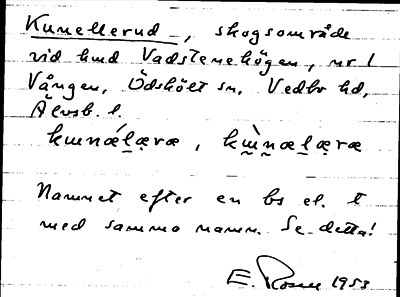 Kunellerud, skogsområde
vid hmd Vadstenehögen, nr 1
Vången, Ödskölt sn, Vedbo hd,
Älvsb. l.
Namnet efter en bs el. t
med samma namn. Se detta!
E. Rosen 1953